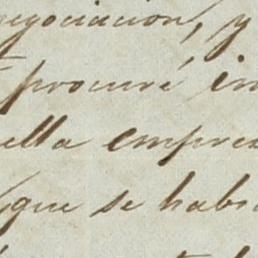 negociacion, y
procuré
ella empre
que se habi